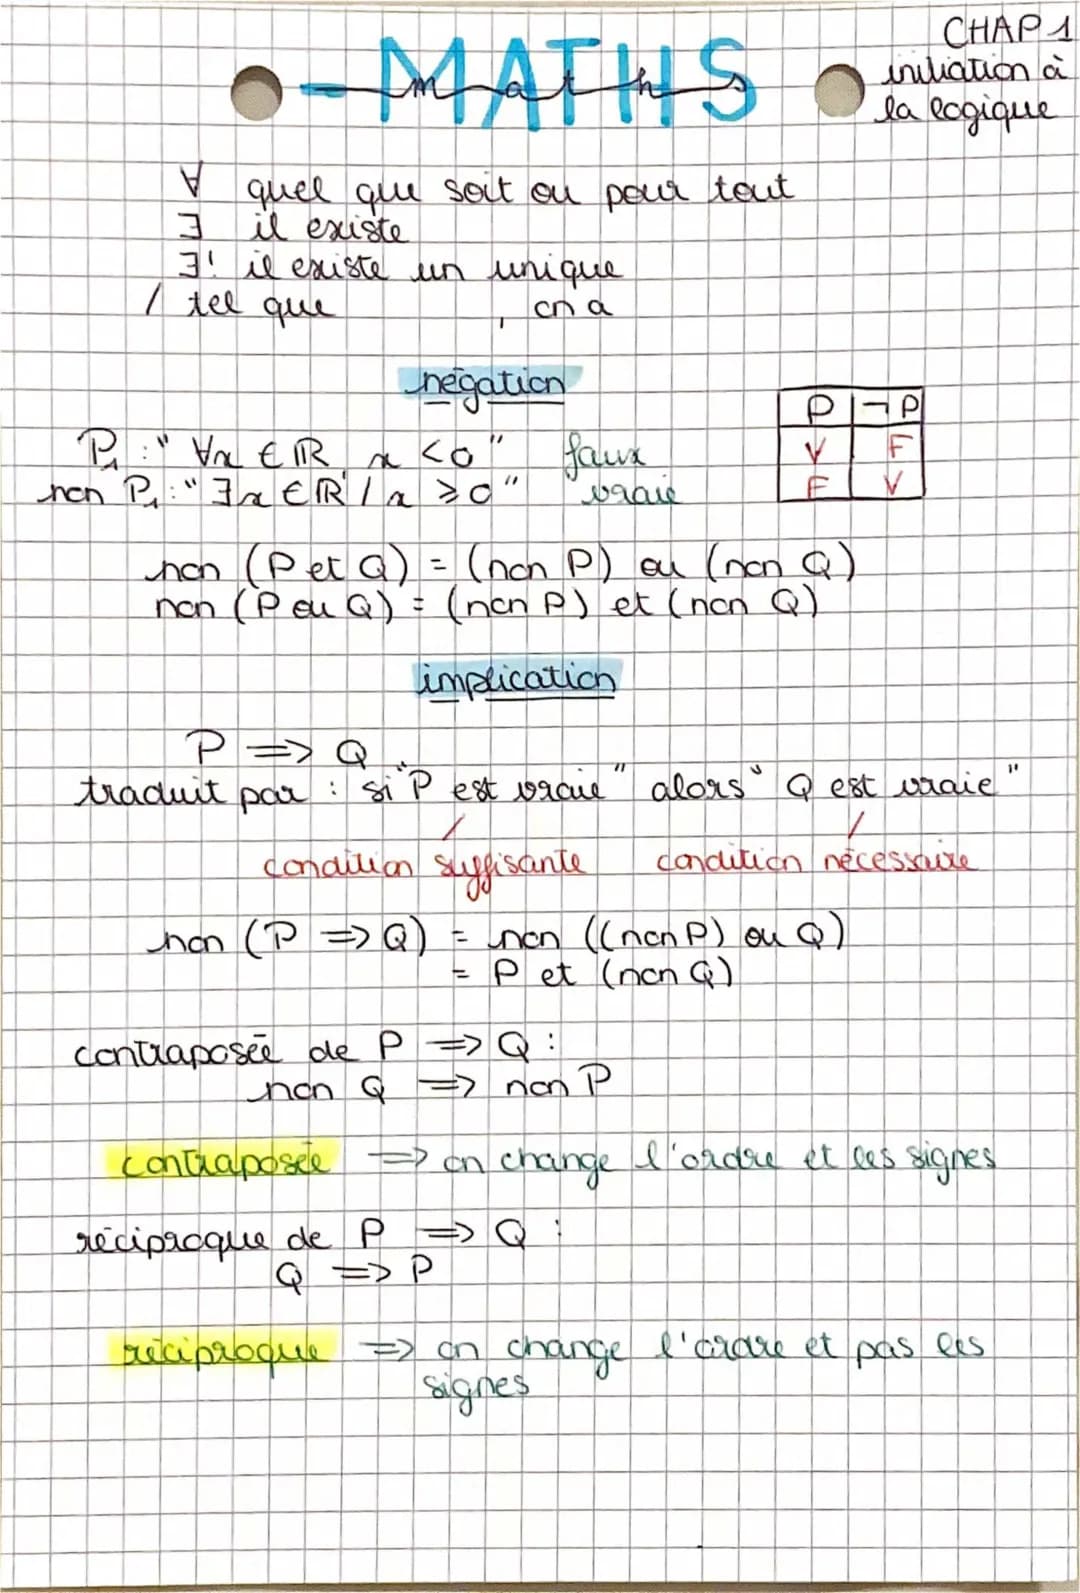 MATHS
maths
CHAP 1
initiation à
la logique
∀ quel que soit ou pour tout
∃ il existe
∃! il existe un unique
/ tel que , on a
négation
P₁ : " ∀x ∈ ℝ, x < 0 " faux
non P₁ : " ∃x ∈ ℝ / x ⩾ 0 " vraie
P ¬P
V F
F V
non (P et Q) = (non P) ou (non Q)
non (P ou Q) = (non P) et (non Q)
implication
P => Q
traduit par : si "P est vraie" alors "Q est vraie"
condition suffisante condition nécessaire
non (P => Q) = non ((non P) ou Q)
= P et (non Q)
contraposée de P => Q :
non Q => non P
contraposée => on change l'ordre et les signes
réciproque de P => Q :
Q => P
réciproque => on change l'ordre et pas les
signes